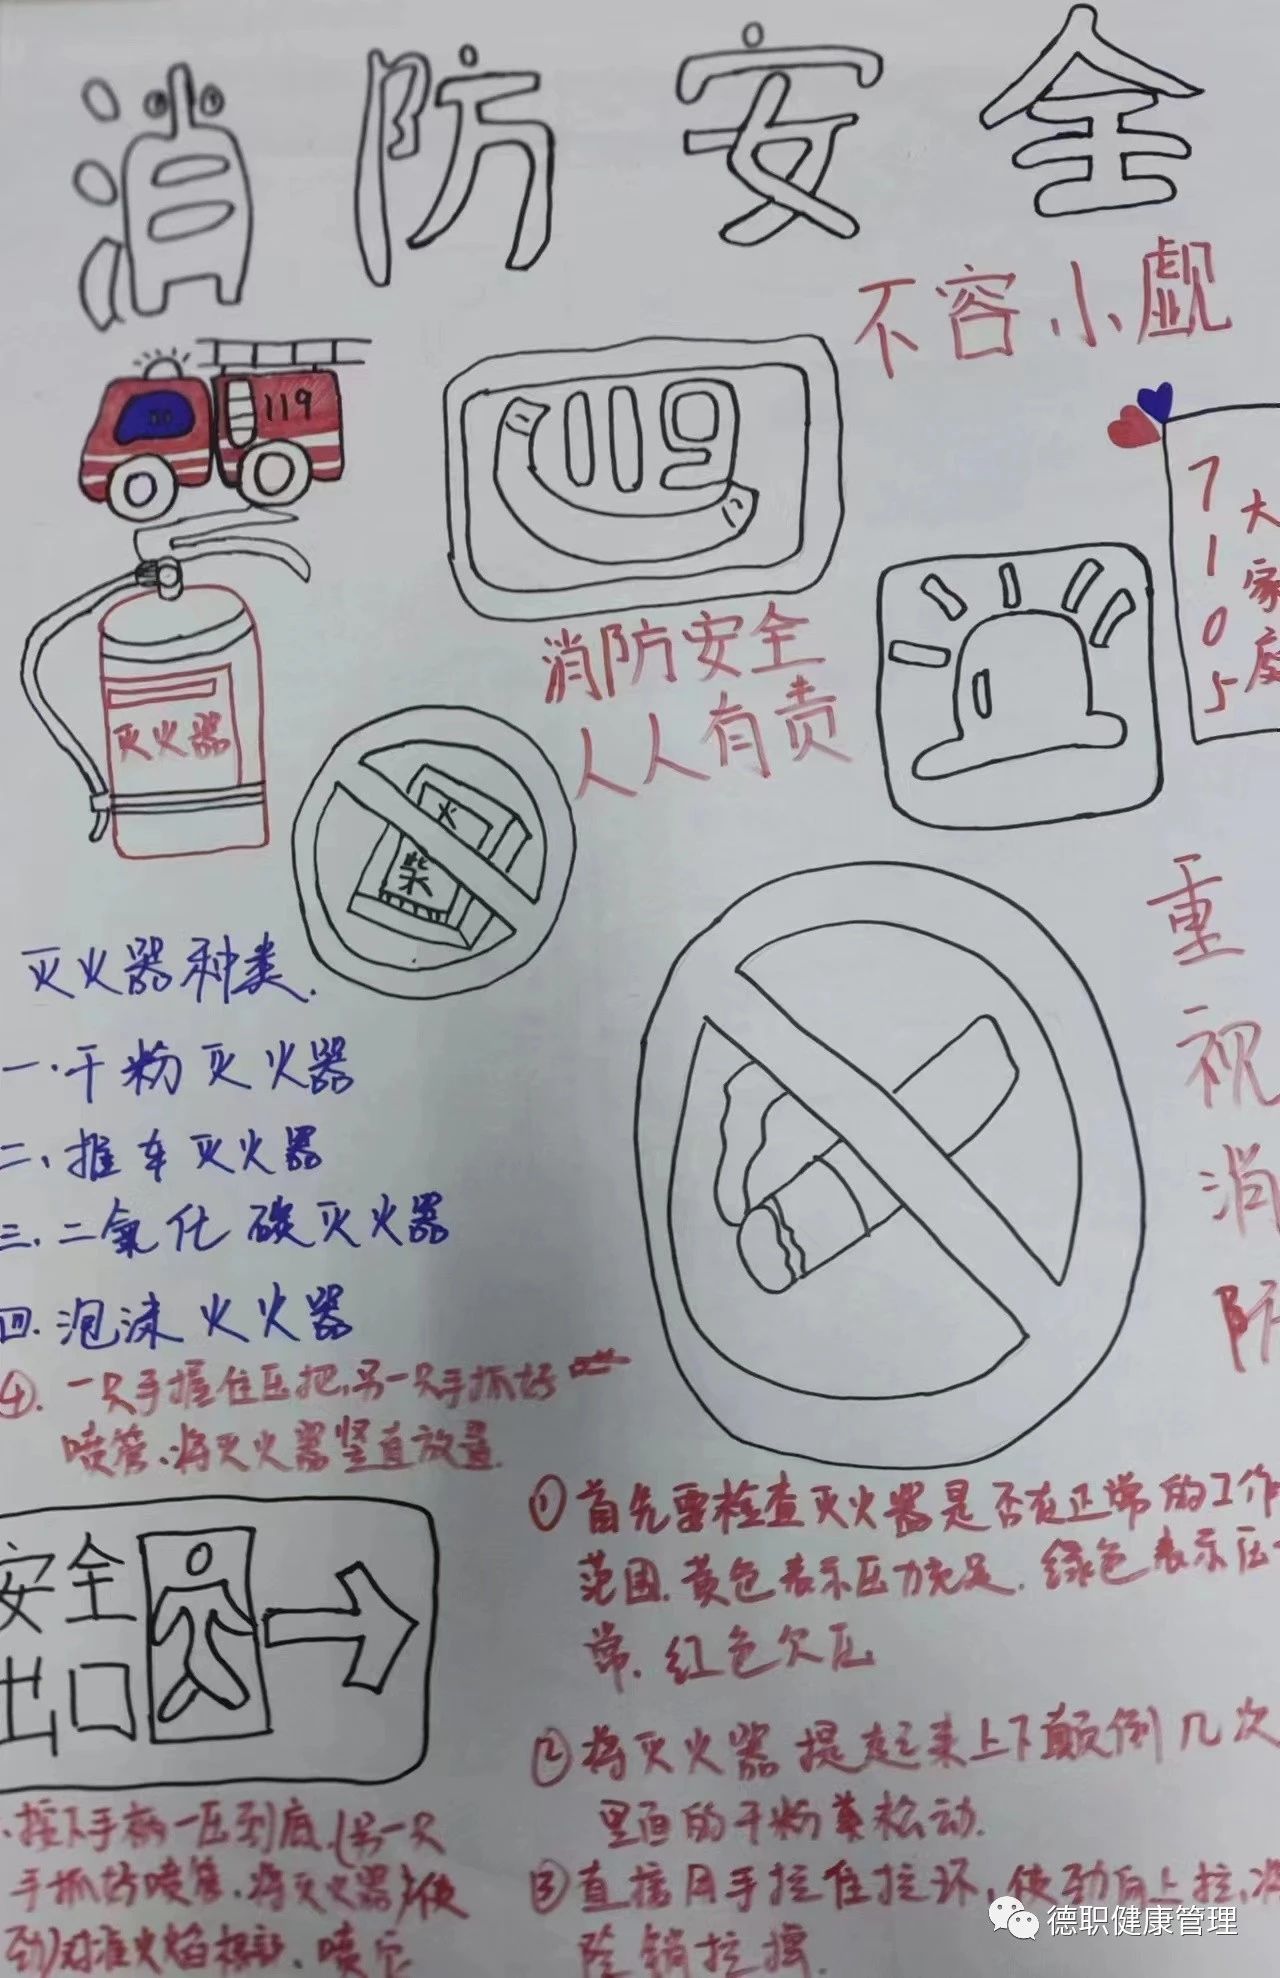 消防安全
不容小觑
119
119
7105
大家庭
灭火器
消防安全
人人有责
火
柴
重视消防
灭火器种类.
一.干粉灭火器
二、推车灭火器
三.二氧化碳灭火器
四.泡沫火火器
④.一只手握住压把,另一只手抓好
喷管、将灭火器竖直放置.
安全
出口
①首先要检查灭火器是否在正常的工作
范围.黄色表示压力充足.绿色表示压
常.红色欠压
②将灭火器提起来上下颠倒几次
里面的干粉 松动.
③直接用手拉住拉环,使劲向上拉,
险销拉
.按下手柄一压到底.(另一只
手抓好喷管.将灭火器)使
劲)对准火焰根部.喷
德职健康管理